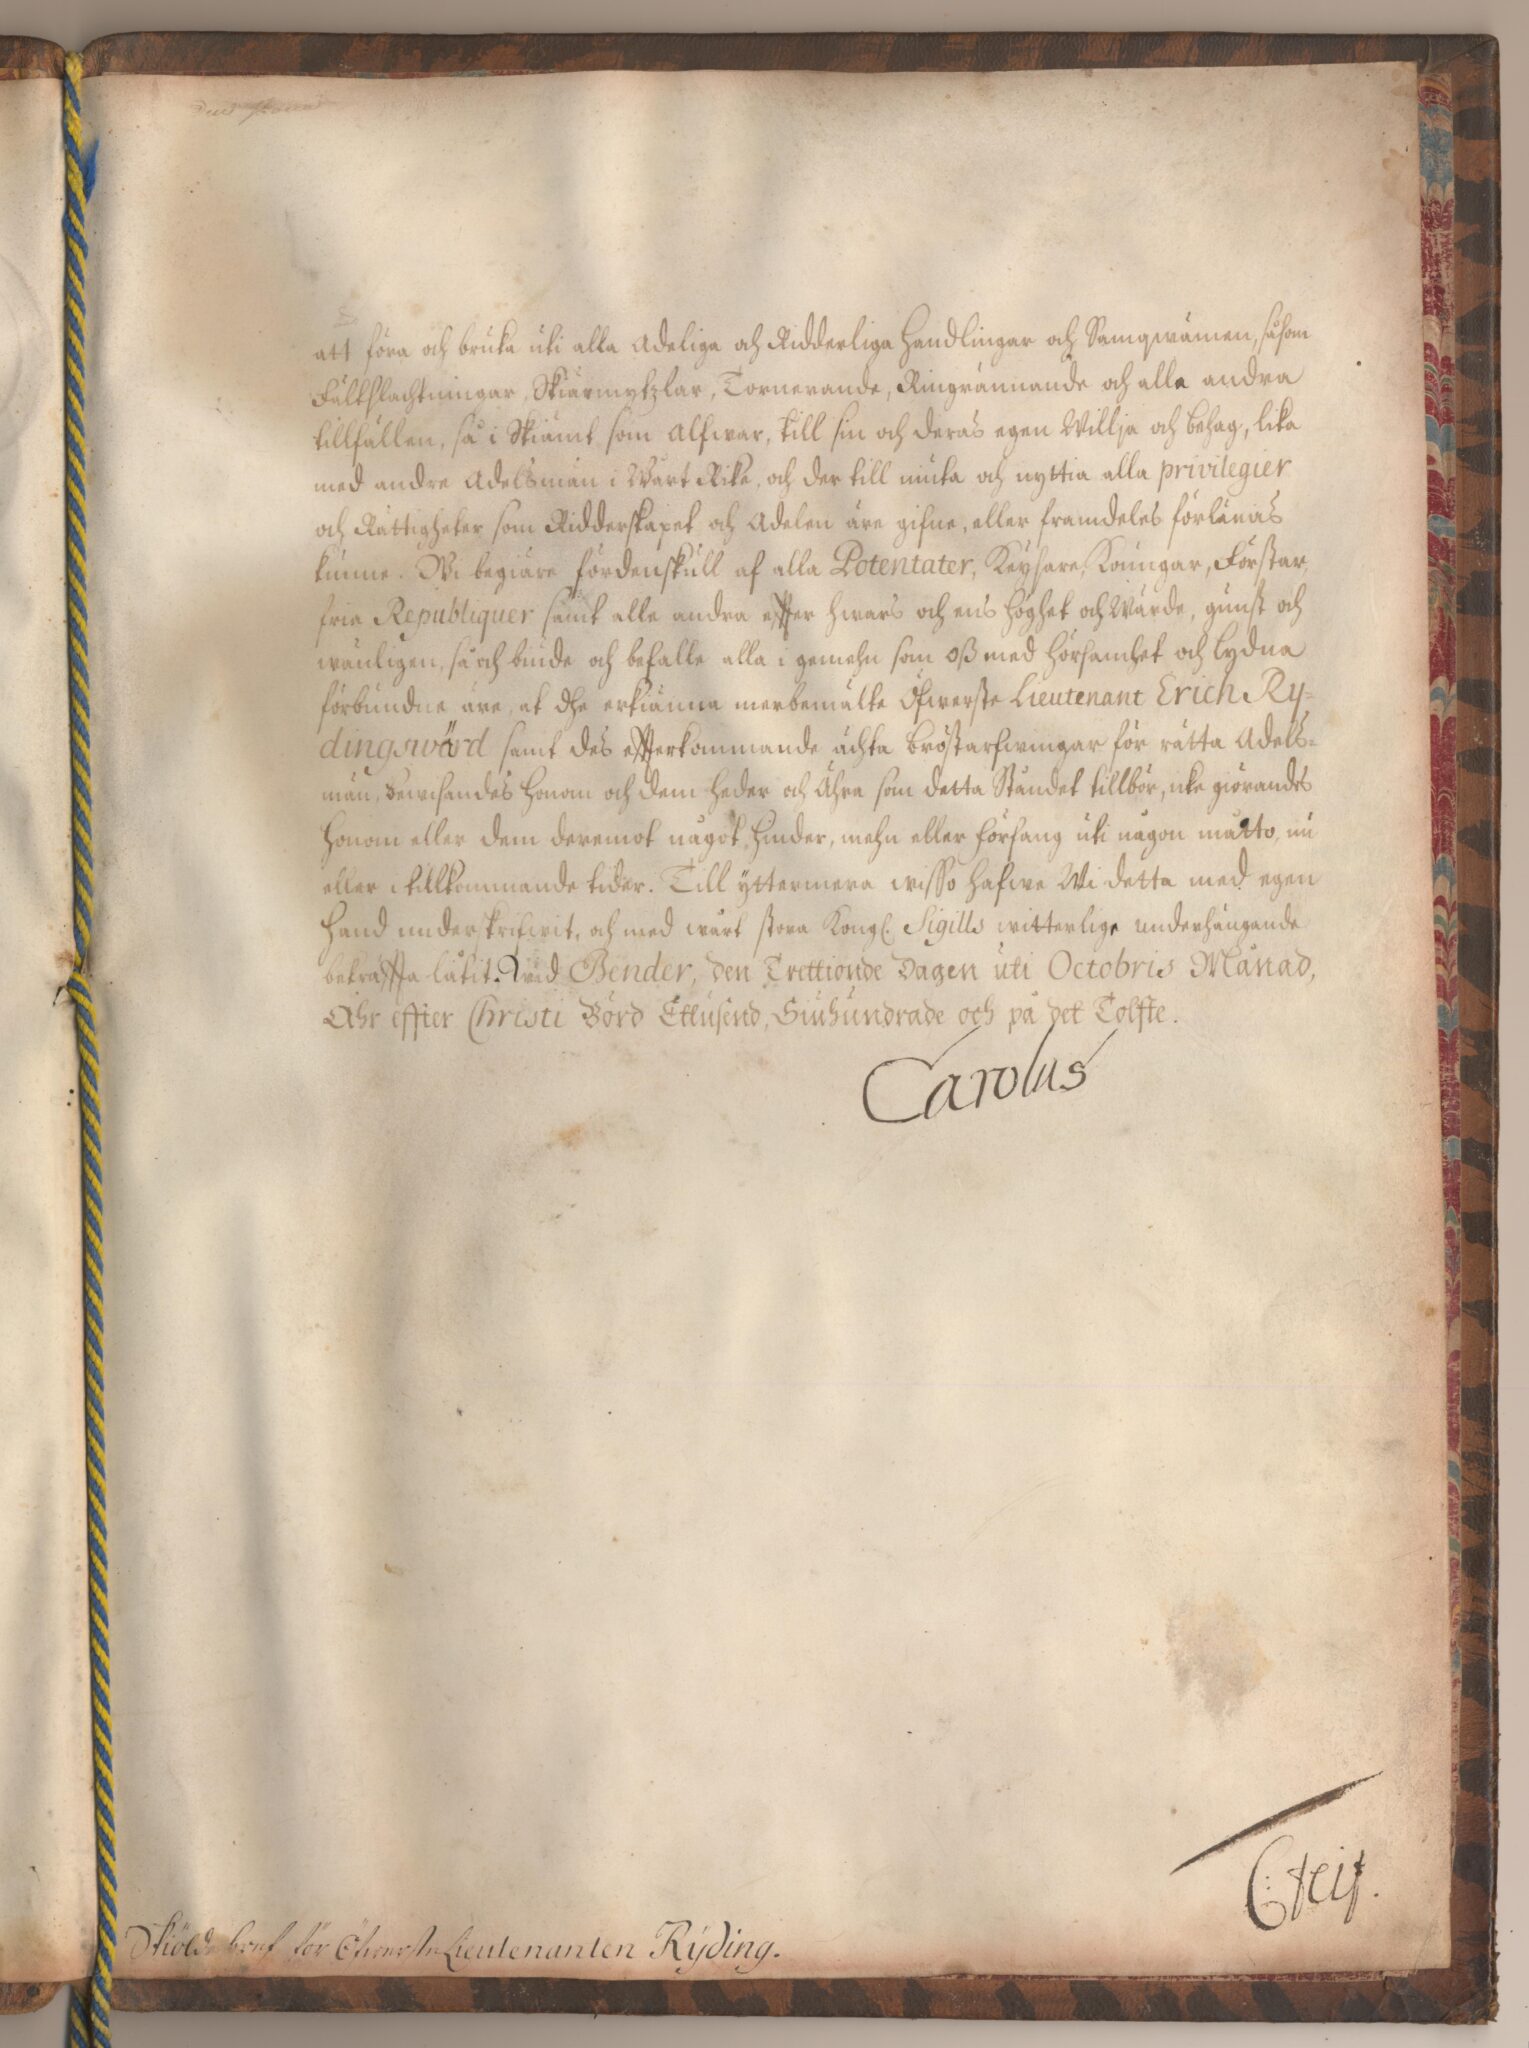 att föra och bruka uti alla Adeliga och Ridderliga Handlingar och Samqwämen, såsom
Fältslachtningar, Skiärmytzlar, Tornerande, Ringrännande och alla andra
tillfällen, så i Skiämt som Alfwar, till sin och deras egen Willja och behag, lika
med andre Adelsmän i Wårt Rike, och der till niuta och nyttia alla privilegier
och Rättigheter som Ridderskapet och Adelen äre gifne, eller framdeles förlänas
kunne. Wi begiäre fördenskull af alla Potentater, Keysare, Konungar, Förstar,
frie Republiquer samt alle andra effter hwars och ens höghet och Wärde, gunst och
wänligen, så och biude och befalle alla i gemehn som oß med hörsamhet och lydna
förbundne äre, at dhe erkiänna merbemälte Öfwerste Lieutenant Erich Ry-
dingswärd samt des effterkommande ächta bröstarfwingar för rätta Adels-
män, bewisandes honom och dem heder och Ähra som detta Ståndet tillbör, icke giörandes
honom eller dem deremot något hinder, mehn eller förfång uti någon måtto, nu
eller i tillkommande tider. Till yttermera wisso hafwe Wi detta med egen
hand underskrifwit, och med wårt stora Kongl. Sigills witterlige underhängande
bekräffta låtit. wid Bender, den Trettionde Dagen uti Octobris Månad,
Åhr effter Christi Börd Ettusend, Siuhundrade och på det Tolfte.
Carolus
Skiölde bref för Öfwerste Lieutenanten Rÿding.